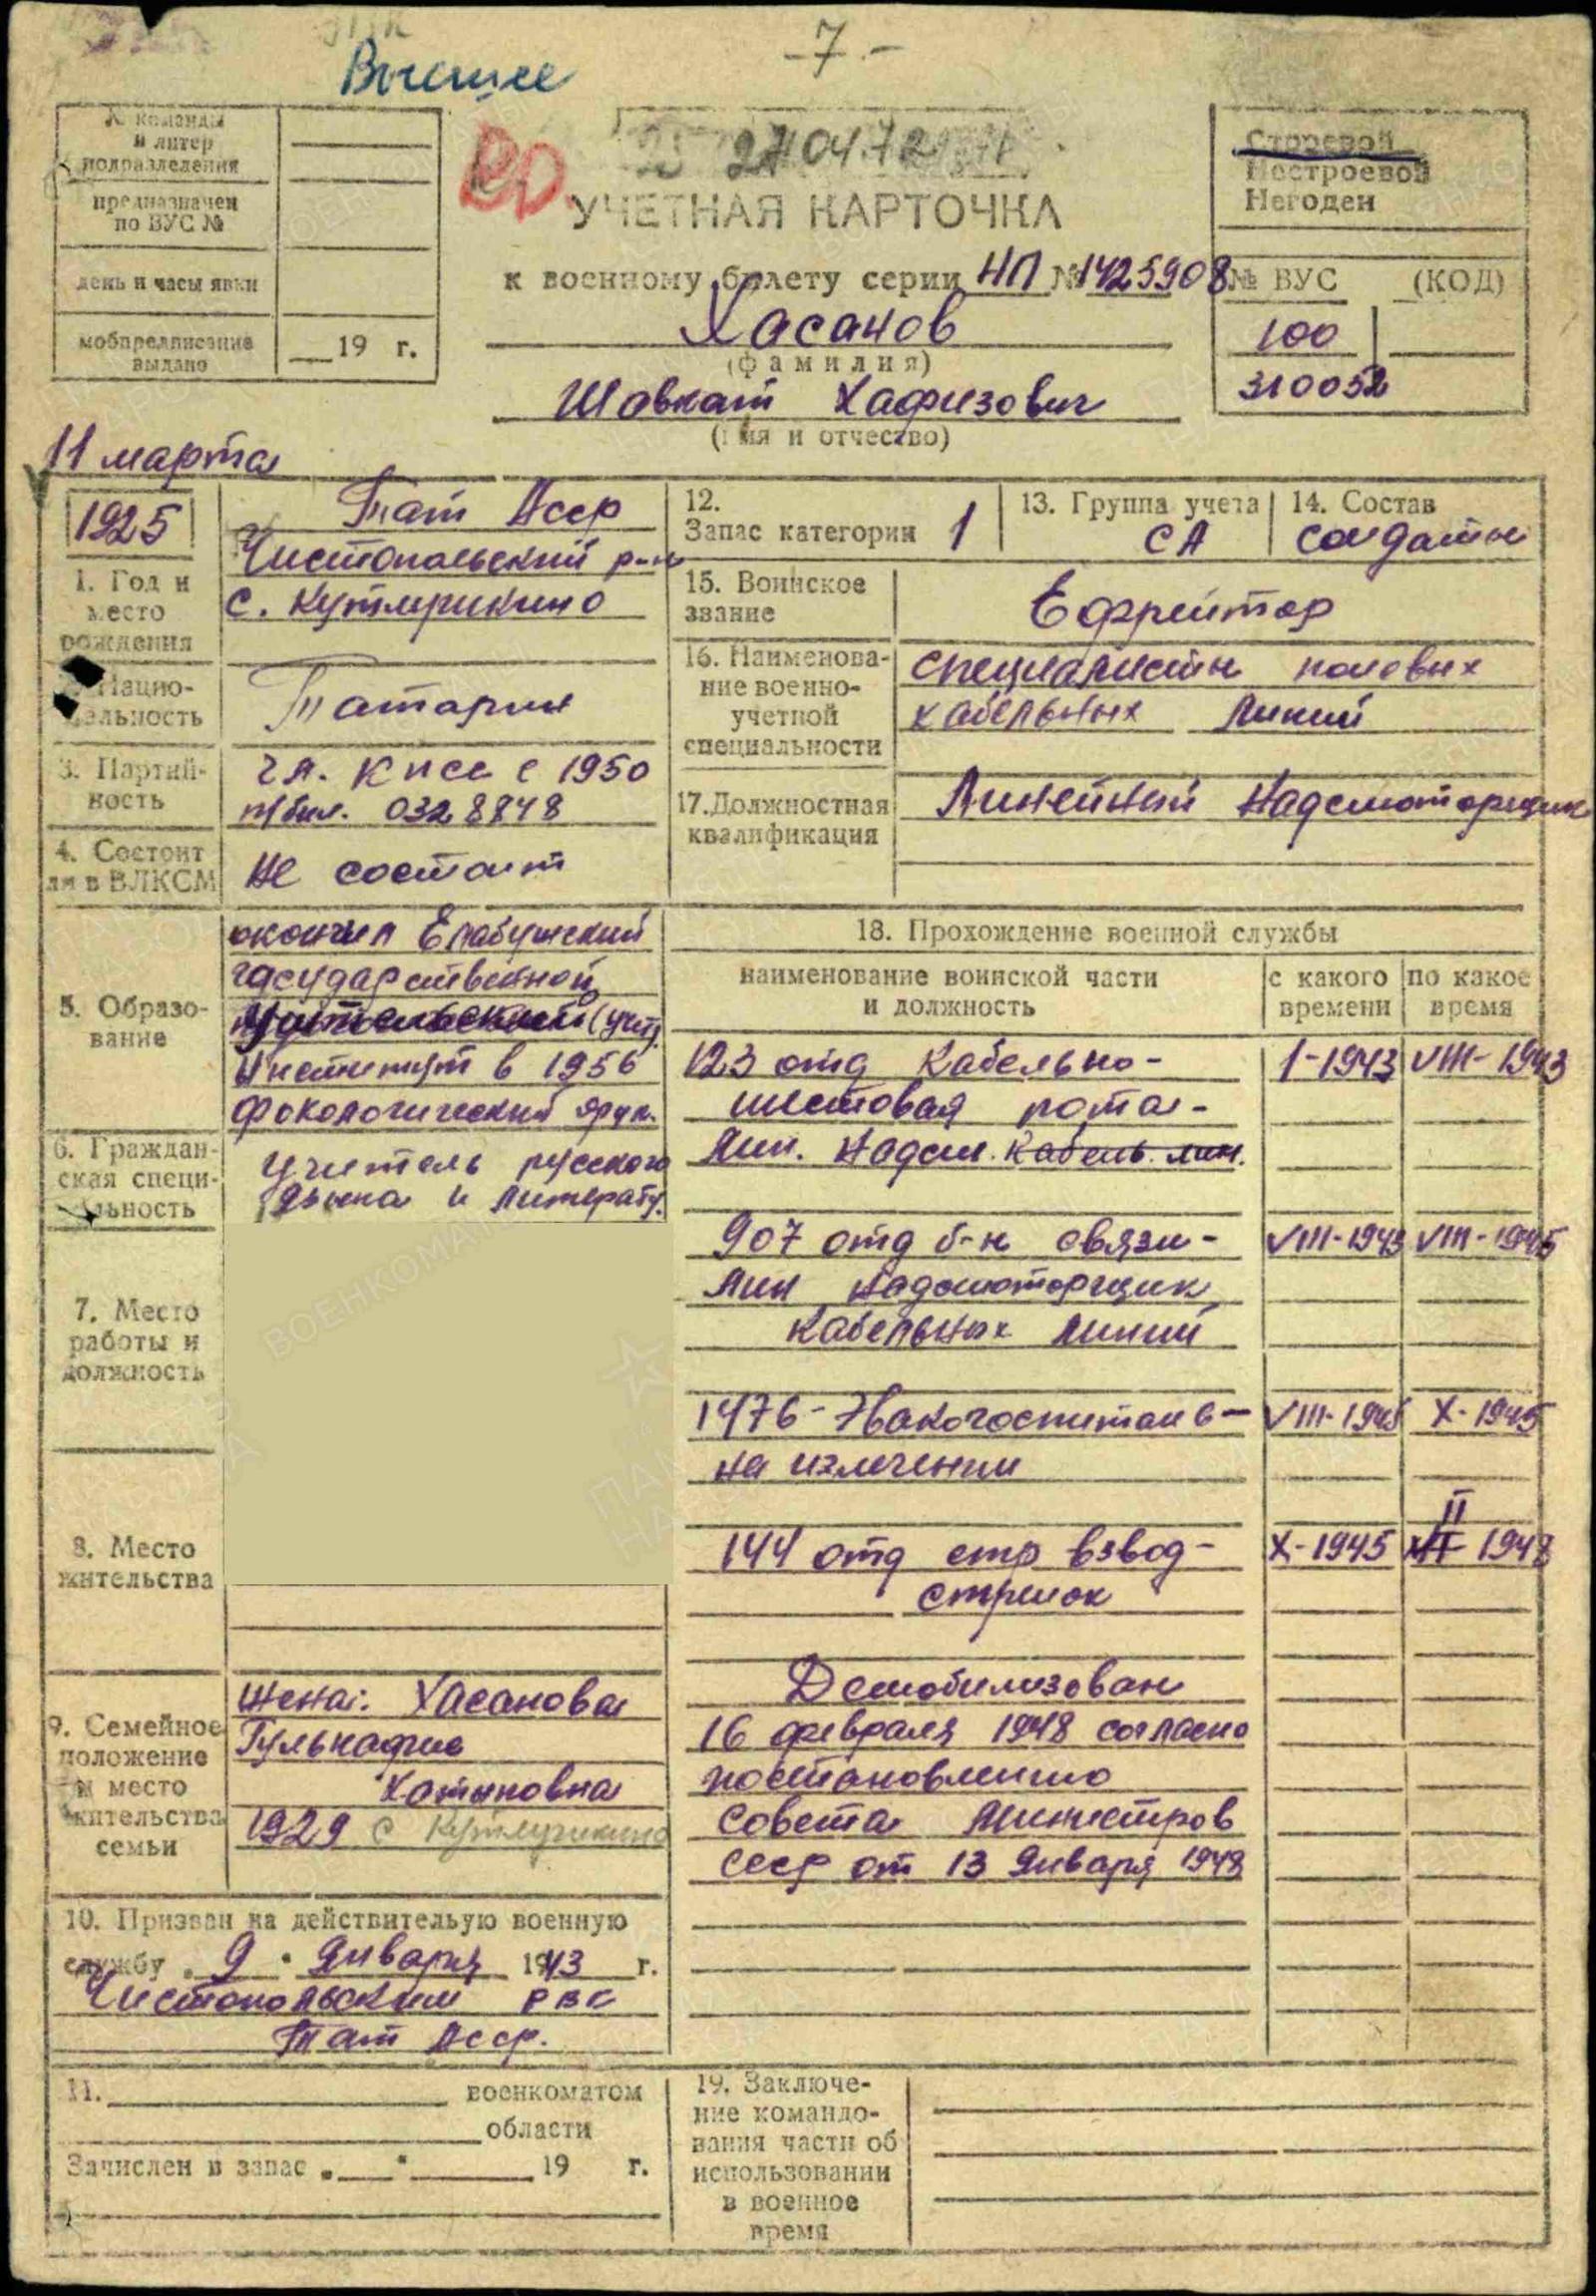 -7-
Высшее
№ команды
и литер
подразделения
предназначен
по ВУС №
день и часы явки
мобпредписание
выдано
19 г.
УЧЕТНАЯ КАРТОЧКА
к военному билету серии НП № 1425908
Хасанов
(фамилия)
Шавкат Хафизович
(имя и отчество)
Строевой
Нестроевой
Негоден
№ ВУС (КОД)
100
310052
11 марта
1925
1. Год и
место
рождения
Тат Асср
Чистопольский р-н
с. Кутлушкино
Нацио-
нальность
Татарин
3. Партий-
ность
чл. КПСС с 1950
п/бил. 0328848
4. Состоит
ли в ВЛКСМ
не состоит
5. Образо-
вание
окончил Елабужский
государственной
(учит.
Институт в 1956
фокологический фук.
6. Граждан-
ская специ-
альность
учитель русского
языка и литерату.
7. Место
работы и
должность
8. Место
жительства
9. Семейное
положение
и место
жительства
семьи
жена: Хасанова
Гульнафис
Хатыповна
1929 с Кутлушкино
10. Призван на действительую военную
службу "9" Января 1943 г.
Чистопольским РВК
Тат Асср.
11. военкоматом
области
Зачислен в запас " " 19 г.
12.
Запас категории 1
13. Группа учета
СА
14. Состав
солдаты
15. Воинское
звание
Ефрейтор
16. Наименова-
ние военно-
учетной
специальности
специалисты полевых
кабельных линий
17. Должностная
квалификация
Линейный надсмоторщик
18. Прохождение военной службы
наименование воинской части
и должность
с какого
времени
по какое
время
123 отд Кабельно- I-1943 VIII-1943
шестовая рота-
Лин. Надсм. Кабель. лин.
907 отд б-н связи- VIII-1943 VIII-1945
Лин Надсмоторщик
кабельных линий
1476-Эвакогоспиталь- VIII-1945 X-1945
на излечении
II
144 отд стр взвод- X-1945 1948
стрелок
Демобилизован
16 февраля 1948 согласно
постановлению
Совета Министров
СССР от 13 Января 1948
19. Заключе-
ние командо-
вания части об
использовании
в военное
время